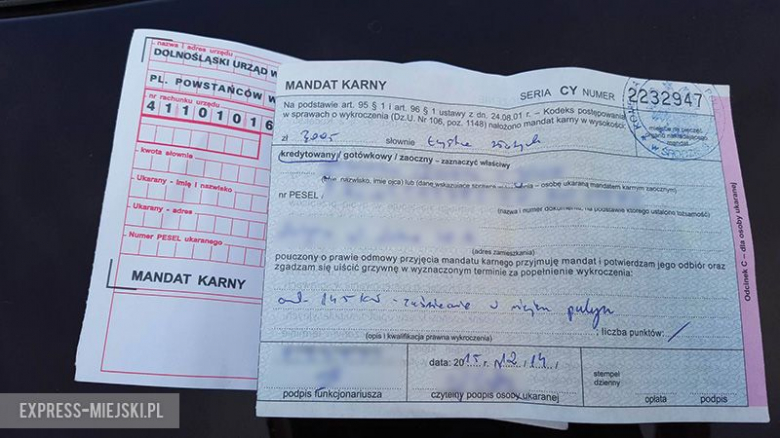 nazwa i adres urzędu
DOLNOŚLĄSKI URZĄD W
PL. POWSTAŃCÓW W
nr rachunku urzędu
41101016
kwota słownie
Ukarany - imię i nazwisko
Ukarany - adres
Numer PESEL ukaranego
MANDAT KARNY
MANDAT KARNY
SERIA CY NUMER 2232947
Na podstawie art. 95 § 1 i art. 96 § 1 ustawy z dn. 24.08.01 r. – Kodeks postępowania
w sprawach o wykroczenia (Dz.U. Nr 106, poz. 1148) nałożono mandat karny w wysokości:
zł słownie złotych
kredytowany / gotówkowy / zaoczny - zaznaczyć właściwy
nazwisko, imię ojca) lub (dane wskazujące – osobę ukaraną mandatem karnym zaocznym)
nr PESEL /
(nazwa i numer dokumentu, na podstawie którego ustalono tożsamość)
(adres zamieszkania)
pouczony o prawie odmowy przyjęcia mandatu karnego przyjmuję mandat i potwierdzam jego odbiór oraz
zgadzam się uiścić grzywnę w wyznaczonym terminie za popełnienie wykroczenia:
145 kw - zaśmiecanie
; liczba punktów: /
(opis i kwalifikacja prawna wykroczenia)
data: 2015 r. 12, 14,
stempel
dzienny
podpis funkcjonariusza
czytelny popis osoby ukaranej
opłata
podpis
Odcinek C – dla osoby ukaranej
EXPRESS-MIEJSKI.PL